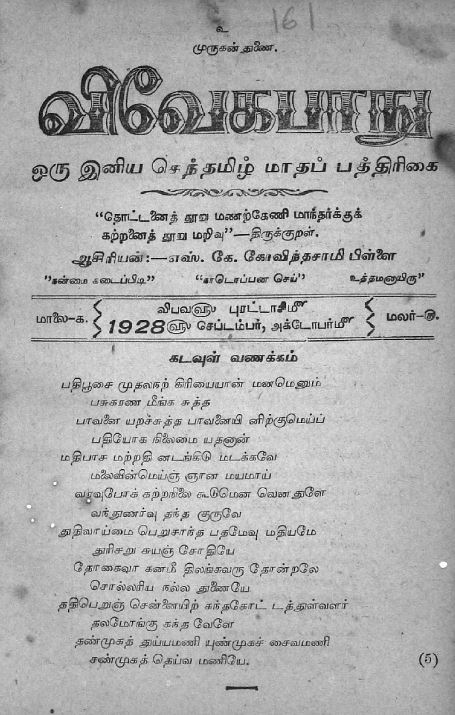 161
உ
முருகன் துணை.
விவேகபாநு
ஒரு இனிய செந்தமிழ் மாதப் பத்திரிகை
“தொட்டனைத் தூறு மணற்கேணி மாந்தர்க்குக்
கற்றனைத் தூறு மறிவு”—திருக்குறள்.
ஆசிரியன்:— எஸ். கே. கோவிந்தசாமி பிள்ளை
”நன்மை கடைப்பிடி” ”காடொப்பன செய்” உத்தமனாயிரு”
மாலை-க. விபவ௵ புரட்டாசி௴ மலர்-௬.
1928௵ செப்டம்பர், அக்டோபர்௴
கடவுள் வணக்கம்
பதிபூசை முதலநற் கிரியையான் மனமெனும்
பசுகரண மீங்க சுத்த
பாவனை யறச்சுத்த பாவனையி னிற்குமெய்ப்
பதியோக நிலைமை யதனான்
மதிபாச மற்றதி னடங்கிடு மடக்கவே
மலைவின்மெய்ஞ் ஞான மயமாய்
வரவுபோக் கற்றநிலை கூடுமென வெனதுளே
வந்துணர்வு தந்த குருவே
துதிவாய்மை பெறுசாந்த பதமேவு மதியமே
துரிசறு சுயஞ் சோதியே
தோகைவா கனமீ திலங்கவரு தோன்றலே
சொல்லரிய நல்ல துணையே
ததிபெறுஞ் சென்னையிற் கந்தகோட் டத்துள்வளர்
தலமோங்கு கந்த வேளே
தண்முகத் துய்யமணி யுண்முகச் சைவமணி
சண்முகத் தெய்வ மணியே. (5)